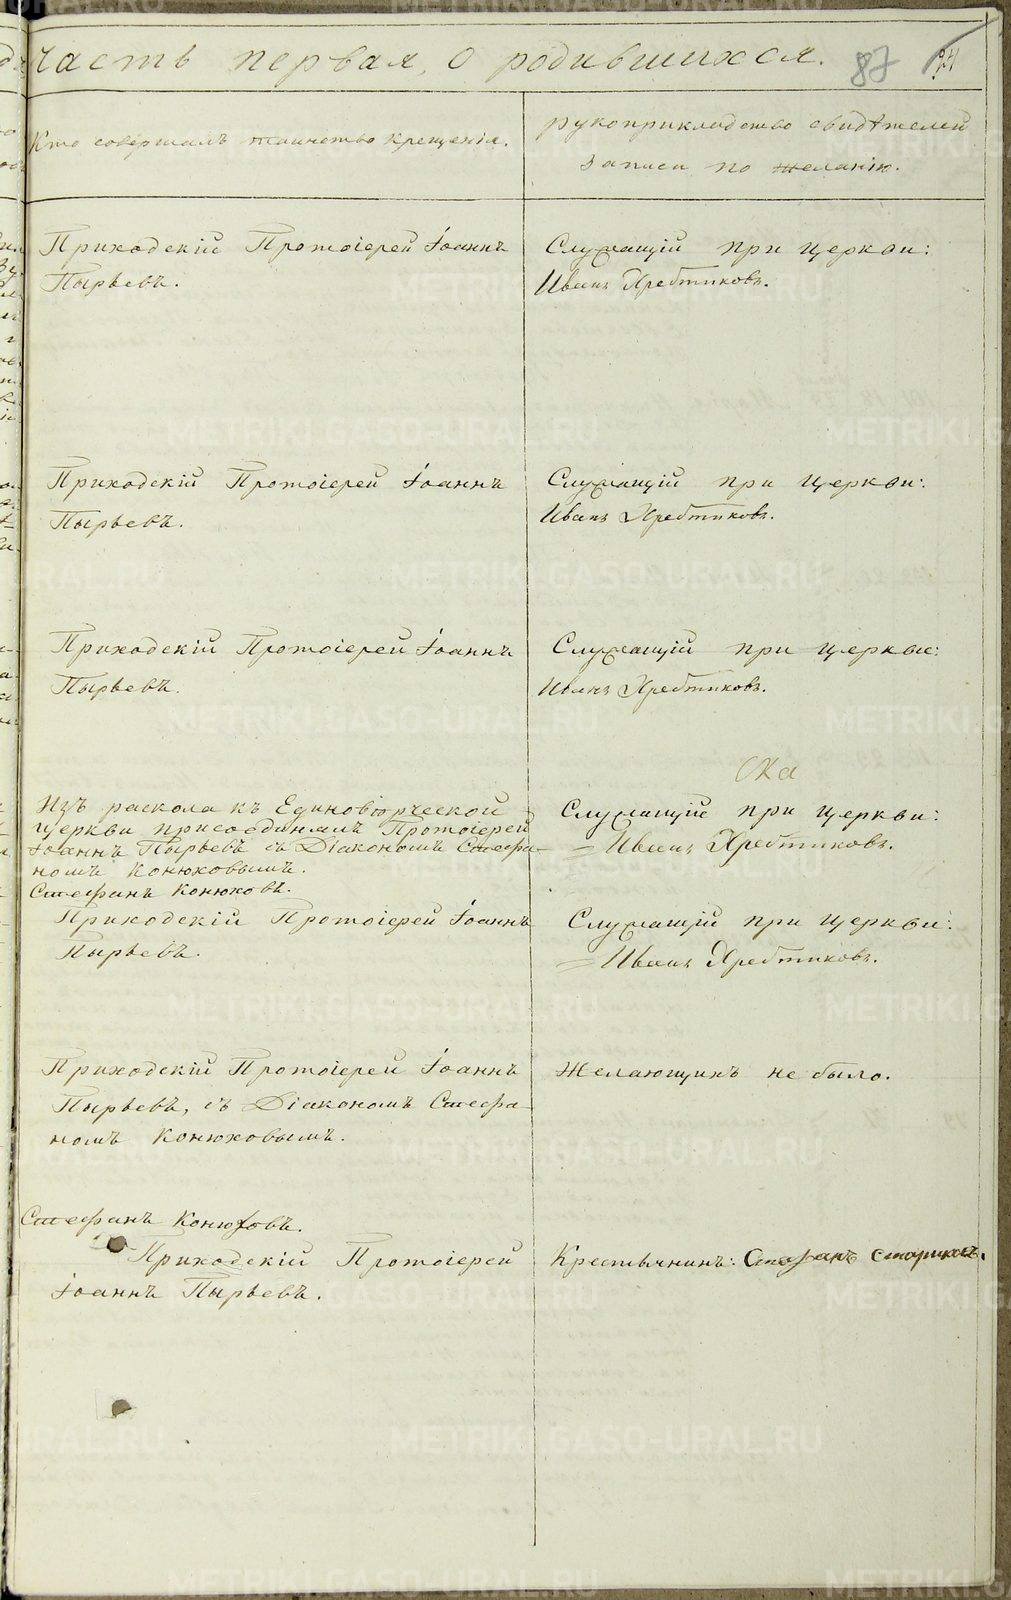 часть первая, о родившихся. 87
Кто совершалъ таинство крещенія.
рукоприкладство свидѣтелей
записи по желанію.
Приходскій Протоіерей Іоаннъ
Пырьевъ.
Служащій при церкви:
Иванъ Хребтиковъ.
Приходскій Протоіерей Іоаннъ
Пырьевъ.
Служащій при церкви:
Иванъ Хребтиковъ.
Приходскій Протоіерей Іоаннъ
Пырьевъ.
Служащій при церкви:
Иванъ Хребтиковъ.
Изъ раскола къ Единовѣрческой
церкви присоединялъ Протоіерей
Іоаннъ Пырьевъ съ Діакономъ Стефа-
номъ Конюховымъ.
Стефанъ Конюховъ.
Служащій при церкви:
Иванъ Хребтиковъ.
Приходскій Протоіерей Іоаннъ
Пырьевъ.
Служащій при церкви:
Иванъ Хребтиковъ.
Приходскій Протоіерей Іоаннъ
Пырьевъ, съ Діакономъ Стефа-
номъ Конюховымъ.
Желающихъ не было.
Стефанъ Конюховъ.
Приходскій Протоіерей
Іоаннъ Пырьевъ.
Крестьянинъ:
METRIKI.GASO-URAL.RU